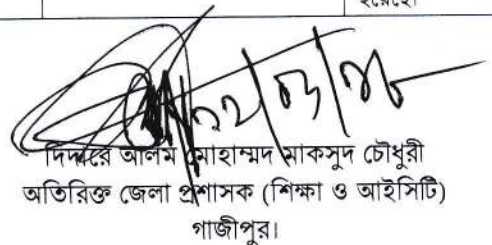 হয়েছে।
দিদারে আলম মোহাম্মদ মাকসুদ চৌধুরী
অতিরিক্ত জেলা প্রশাসক (শিক্ষা ও আইসিটি)
গাজীপুর।